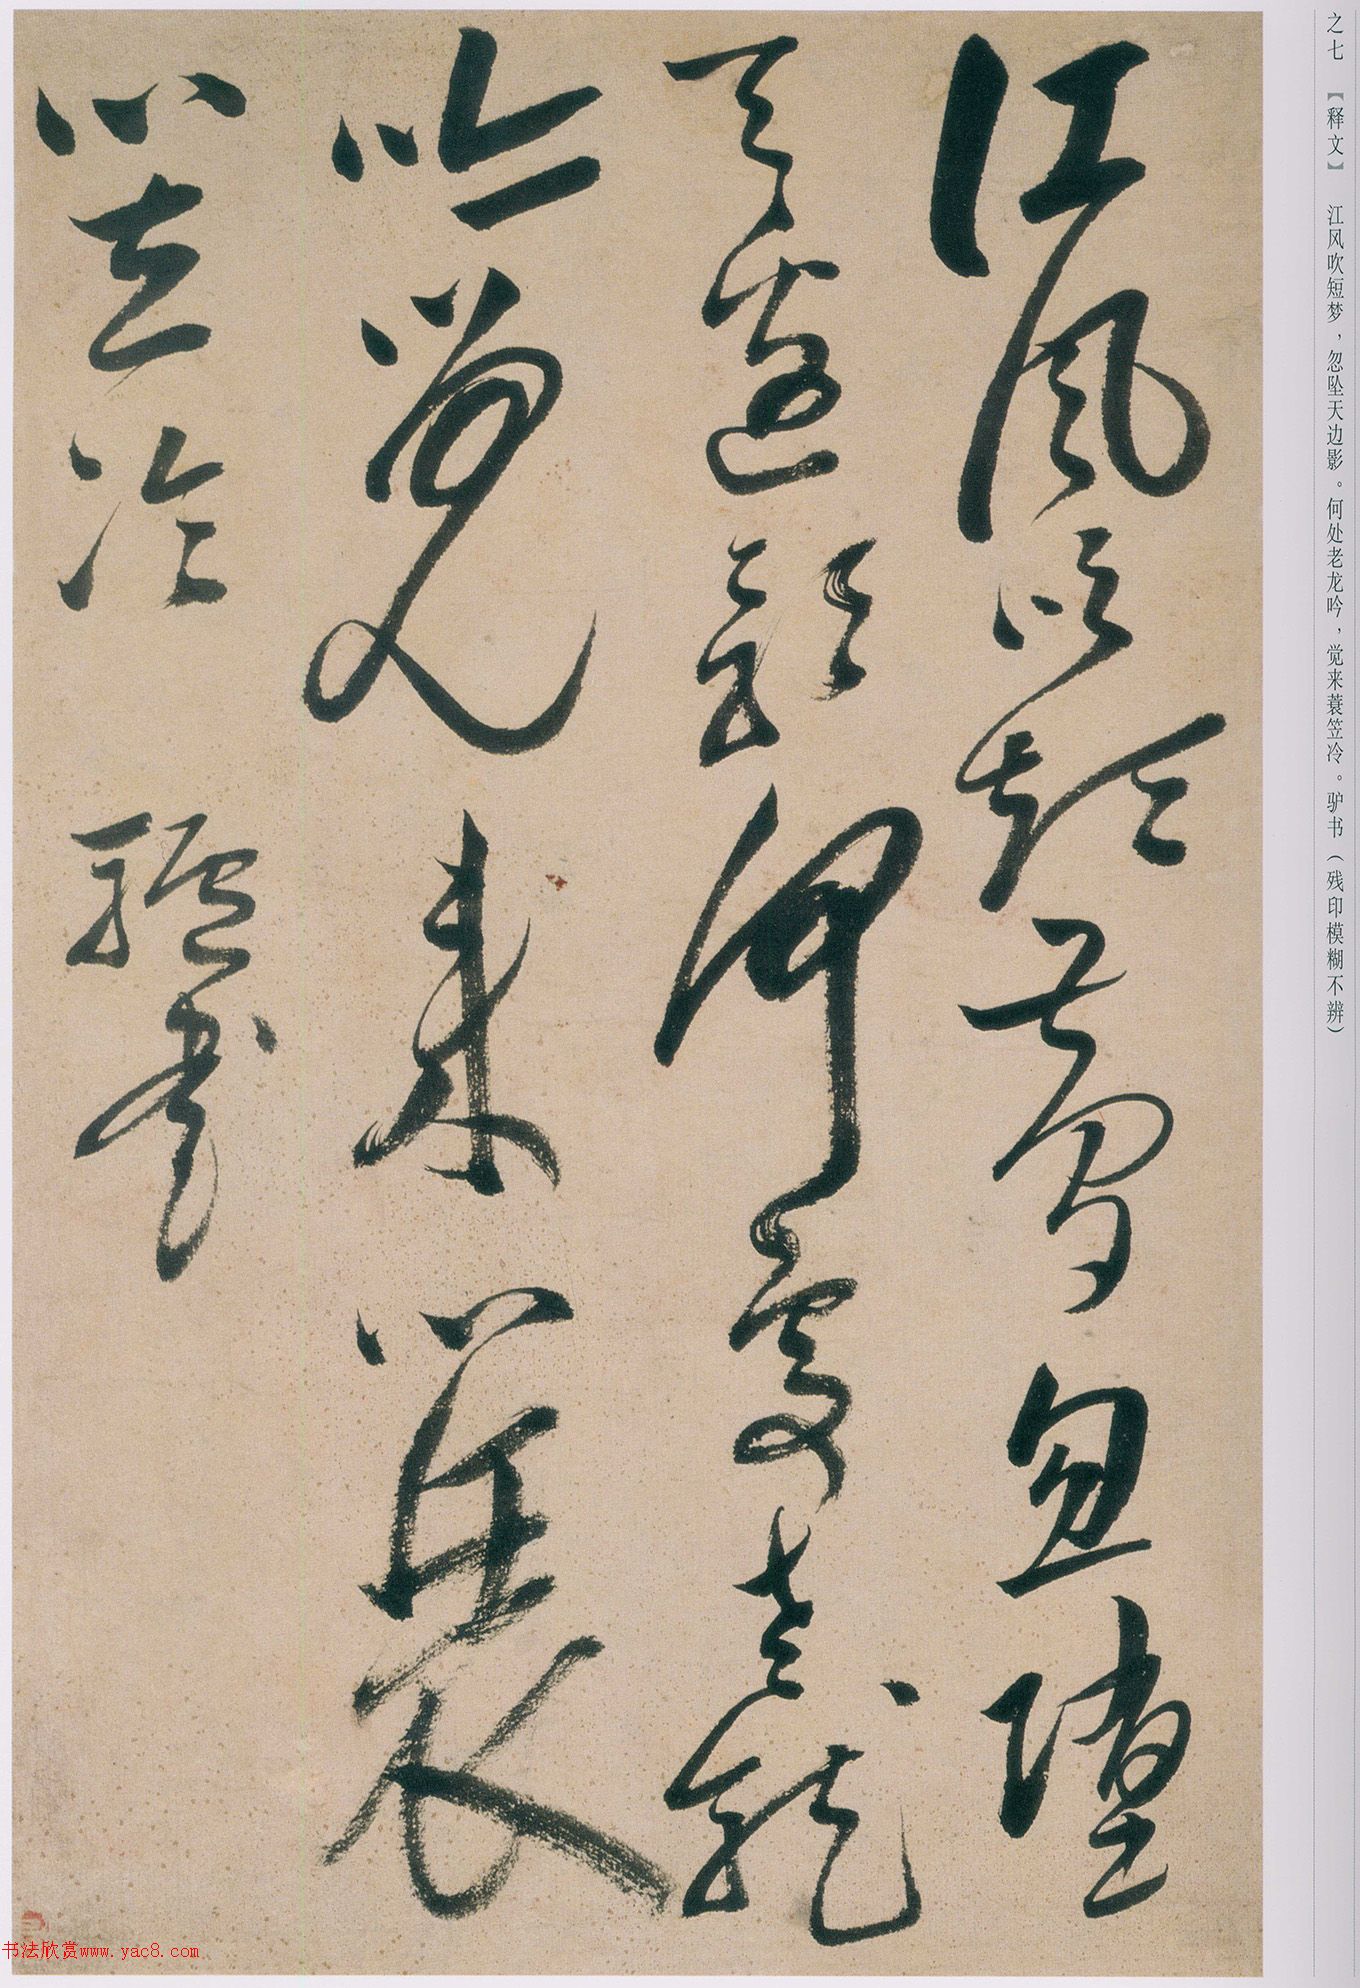 之七 【释文】 江风吹短梦，忽坠天边影。何处老龙吟，觉来蓑笠冷。驴书（残印模糊不辨）
江風吹短夢忽墮
天邊影何處老龍
吟覺來簑
笠冷 驢書
书法欣赏www.yac8.com